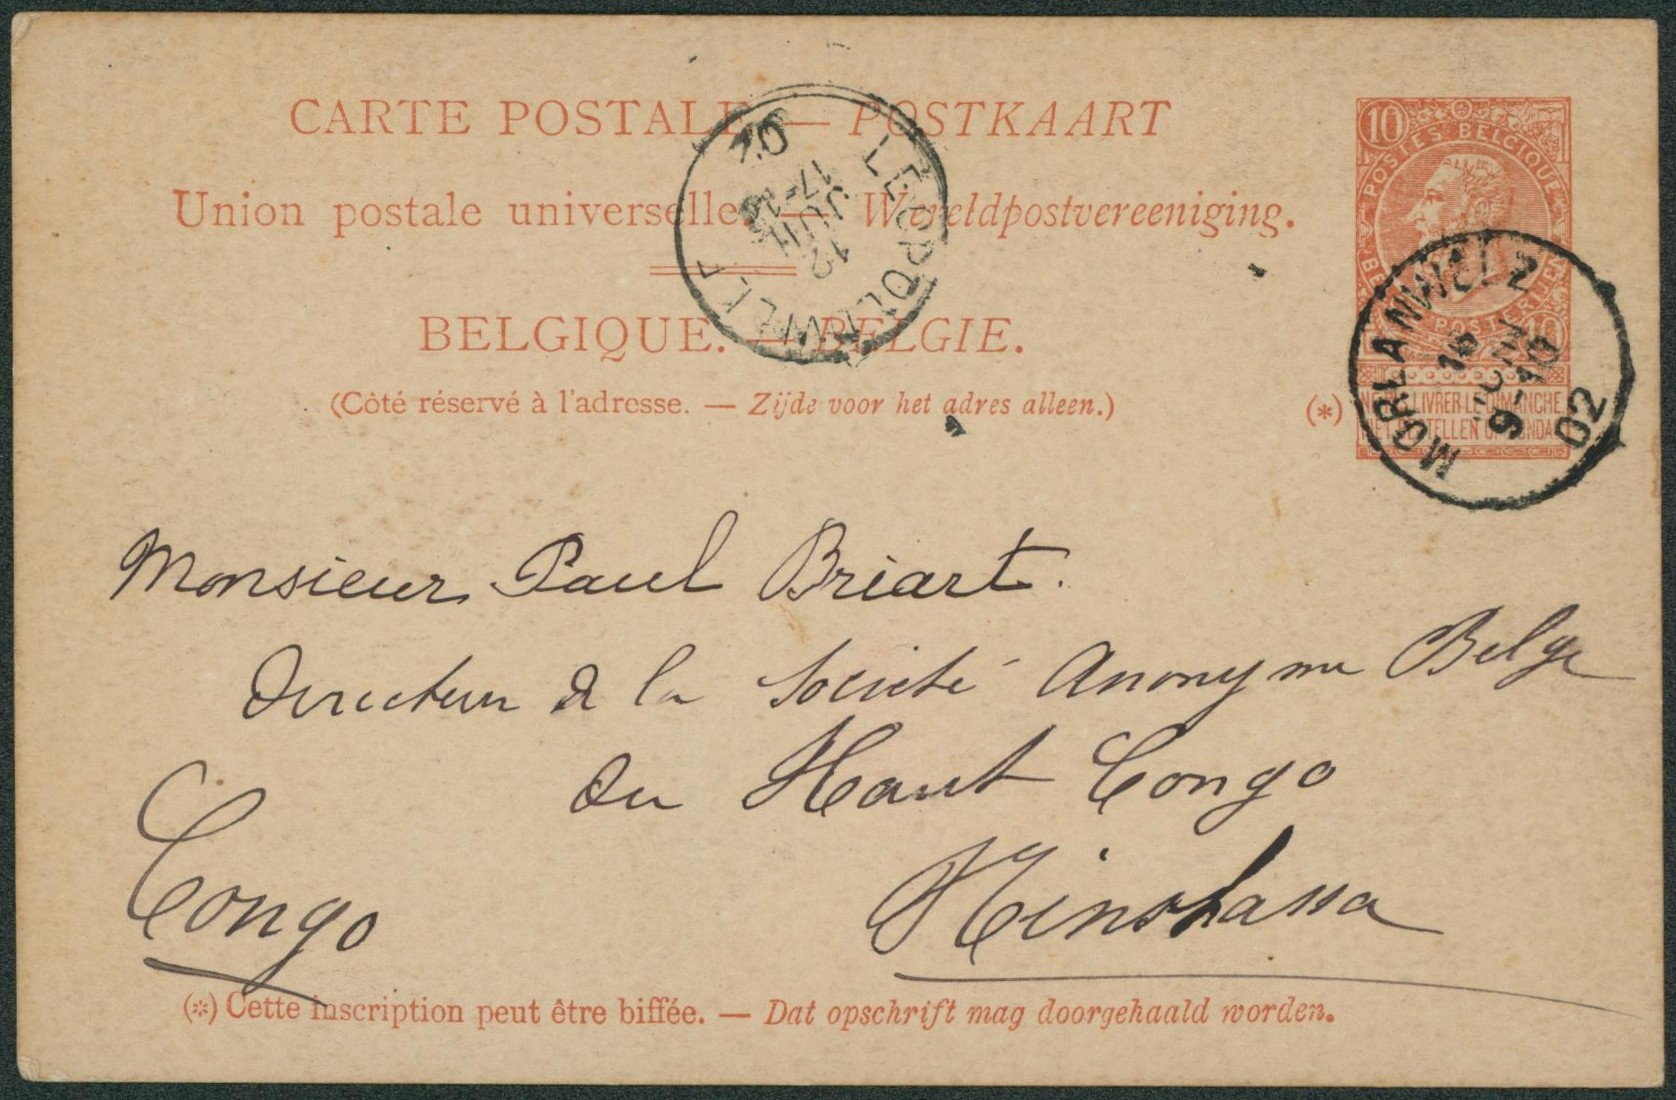 CARTE POSTALE — POSTKAART
Union postale universelle. — Wereldpostvereeniging.
BELGIQUE. — BELGIE.
(Côté réservé à l'adresse. — Zijde voor het adres alleen.)
10
POSTES BELGIQUE
10
(*)
NE PAS LIVRER LE DIMANCHE
NIET BESTELLEN OP ZONDAG
LEOPOLDVILLE
12
JUIL
17-18
02
MORLANWELZ
16
JUIN
9-10
02
Monsieur Paul Briart.
Directeur de la Société Anonyme Belge
du Haut Congo
Kinshassa
Congo
(*) Cette inscription peut être biffée. — Dat opschrift mag doorgehaald worden.